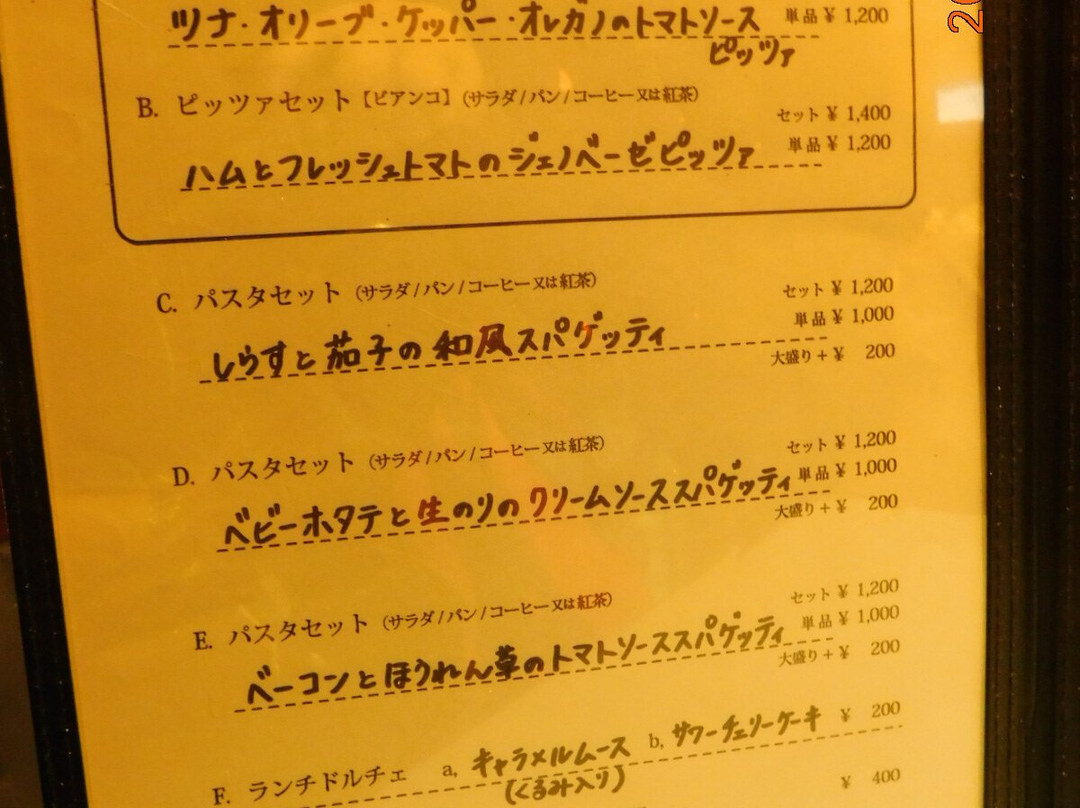 ツナ・オリーブ・ケッパー・オレガノのトマトソース 単品 ¥ 1,200
ピッツァ
B. ピッツァセット【ビアンコ】(サラダ/パン/コーヒー又は紅茶)
セット ¥ 1,400
ハムとフレッシュトマトのジェノベーゼピッツァ 単品 ¥ 1,200
C. パスタセット (サラダ/パン/コーヒー又は紅茶) セット ¥ 1,200
単品 ¥ 1,000
しらすと茄子の和風スパゲッティ
大盛り+¥ 200
D. パスタセット (サラダ/パン/コーヒー又は紅茶) セット ¥ 1,200
ベビーホタテと生のりのクリームソーススパゲッティ 単品 ¥ 1,000
大盛り+¥ 200
E. パスタセット (サラダ/パン/コーヒー又は紅茶) セット ¥ 1,200
ベーコンとほうれん草のトマトソーススパゲッティ 単品 ¥ 1,000
大盛り+¥ 200
F. ランチドルチェ a, キャラメルムース b, サワーチェリーケーキ ¥ 200
(くるみ入り) ¥ 400